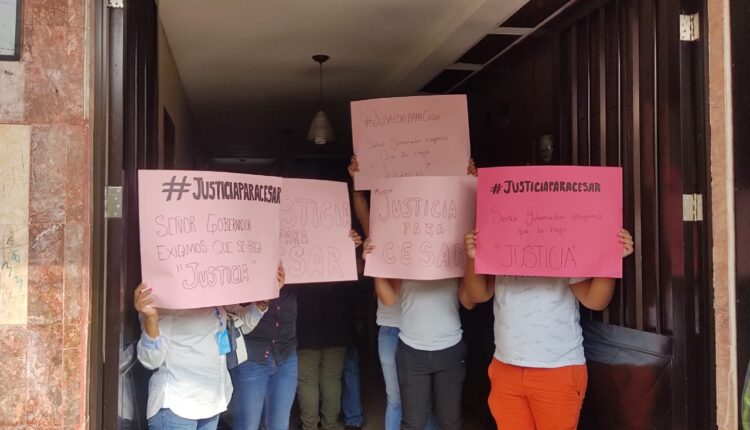 #JUSTICIAPARACESAR
SEÑOR GOBERNADOR
EXIGIMOS QUE SE HAGA
"JUSTICIA"
JUSTICIA
PARA
CESAR
#JusticiaPARACesar
Señor Gobernador exigimos
Que se haga
"Justicia"
JUSTICIA
PARA
CESAR
#JUSTICIAPARACESAR
Señor Gobernador exigimos
que se haga
"JUSTICIA"